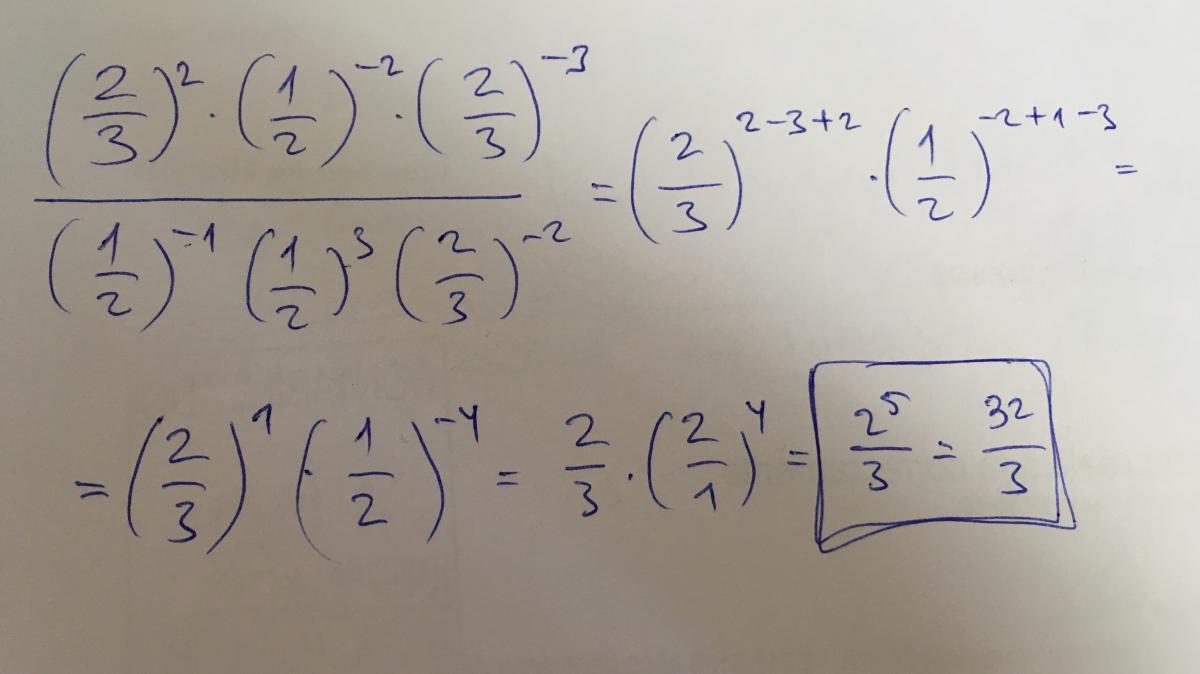 (2/3)^2 · (1/2)^-2 · (2/3)^-3 / (1/2)^-1 (1/2)^3 (2/3)^-2 = (2/3)^2-3+2 · (1/2)^-2+1-3 =
= (2/3)^1 · (1/2)^-4 = 2/3 · (2/1)^4 = 2^5/3 = 32/3